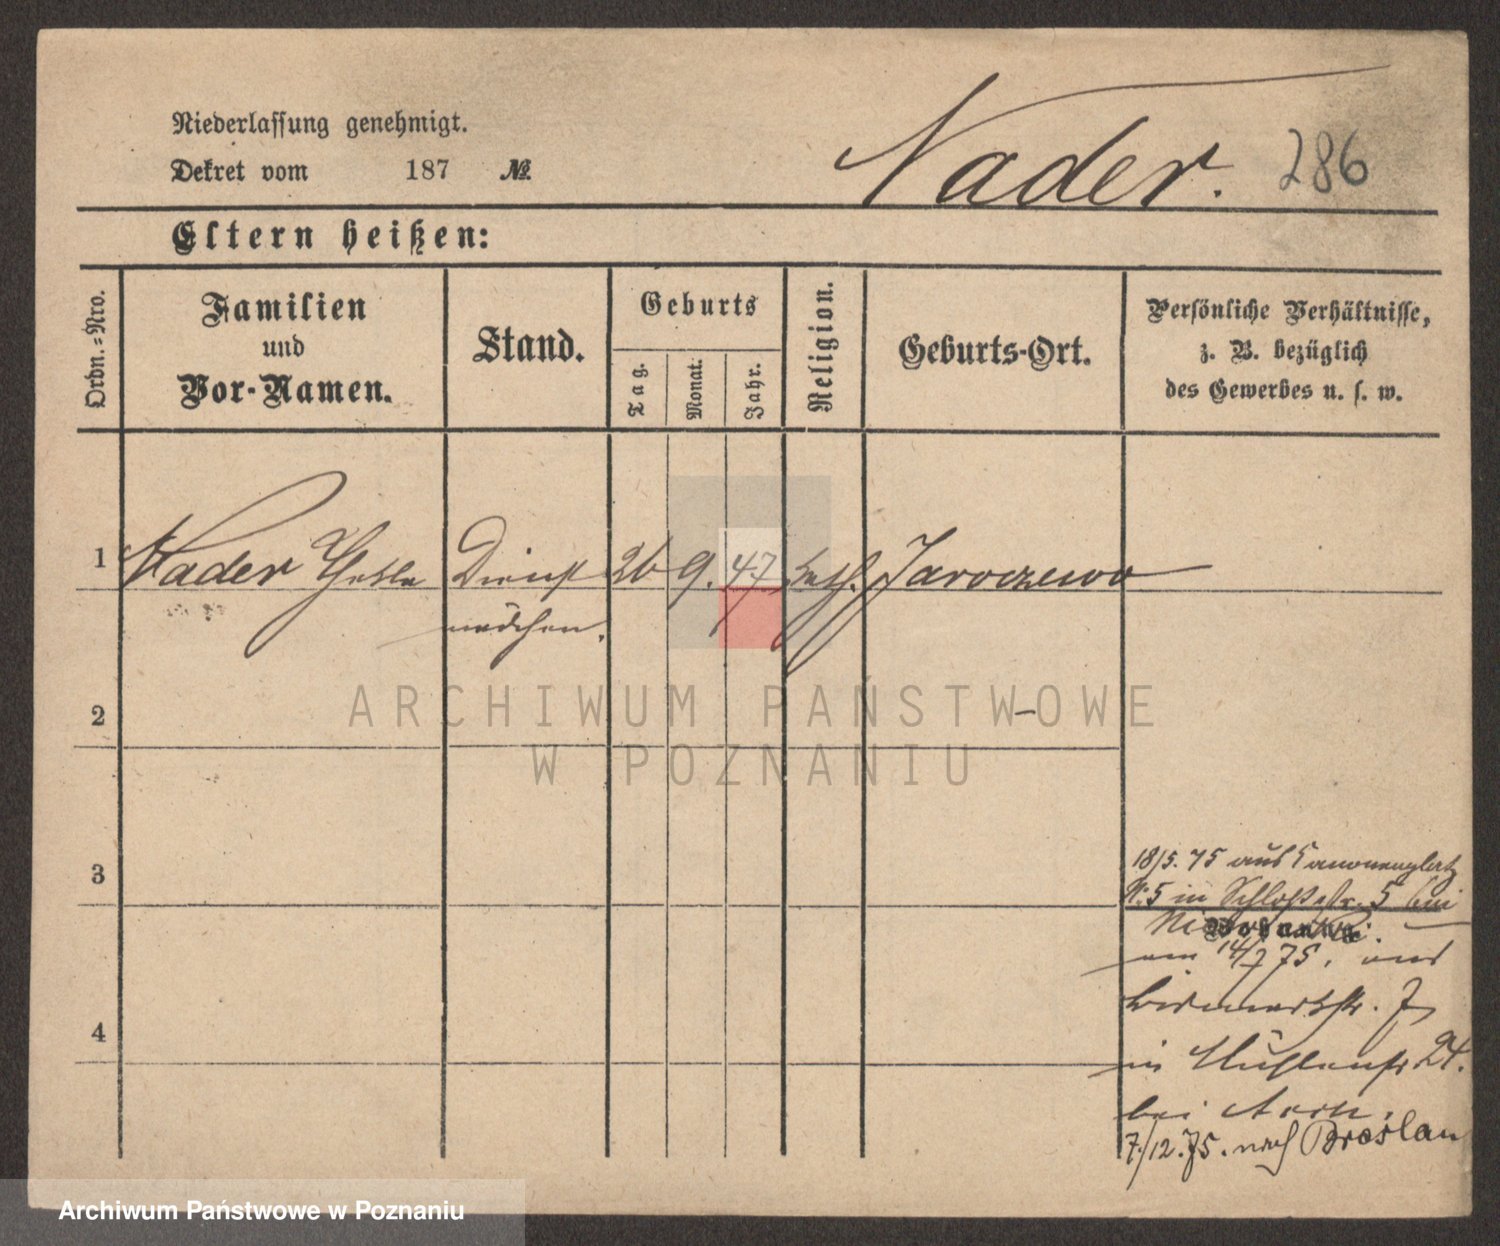 Niederlassung genehmigt.
Dekret vom 187 №
Nader. 286
Eltern heißen:
Ordn.=Nro.
Familien
und
Vor-Namen.
Stand.
Geburts
Tag.
Monat.
Jahr.
Religion.
Geburts-Ort.
Persönliche Verhältnisse,
z. B. bezüglich
des Gewerbes u. s. w.
1 Nader Dienst 26 9. 47 kath. Jaroczewo
mädchen.
2
3
4
18/5. 75 aus Kanonenplatz
N. 5 in Schloßstr. 5 bei
am 14/7 75. aus
Bismarckstr. 7
in Mühlenstr 24.
bei
7./12. 75. nach Breslau
ARCHIWUM PAŃSTWOWE
W POZNANIU
Archiwum Państwowe w Poznaniu